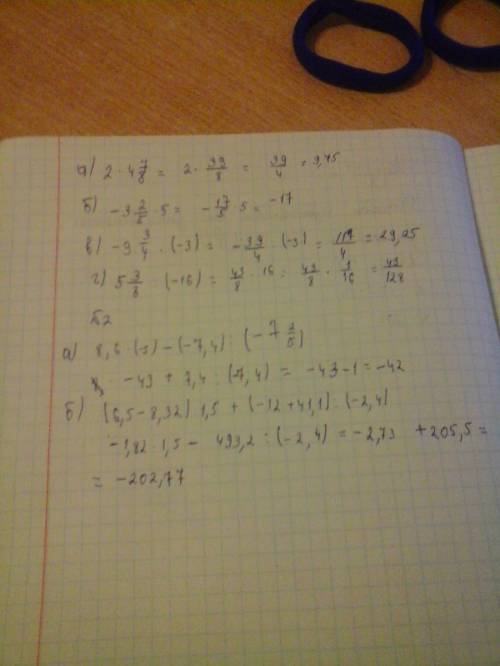 а) 2 · 4 7/8 = 2 · 39/8 = 39/4 = 9,75
б) -3 2/5 · 5 = -17/5 · 5 = -17
в) -9 3/4 · (-3) = -39/4 · (-3) = 117/4 = 29,25
г) 5 3/8 : (-16) = 43/8 : 16 = 43/8 · 1/16 = 43/128
№2
а) 8,6 · (-5) - (-7,4) : (-7 2/5)
-43 + 7,4 : (7,4) = -43-1 = -42
б) (6,5-8,32) 1,5 + (-12 · 41,1) : (-2,4)
-1,82 · 1,5 - 493,2 : (-2,4) = -2,73 + 205,5 =
= -202,77